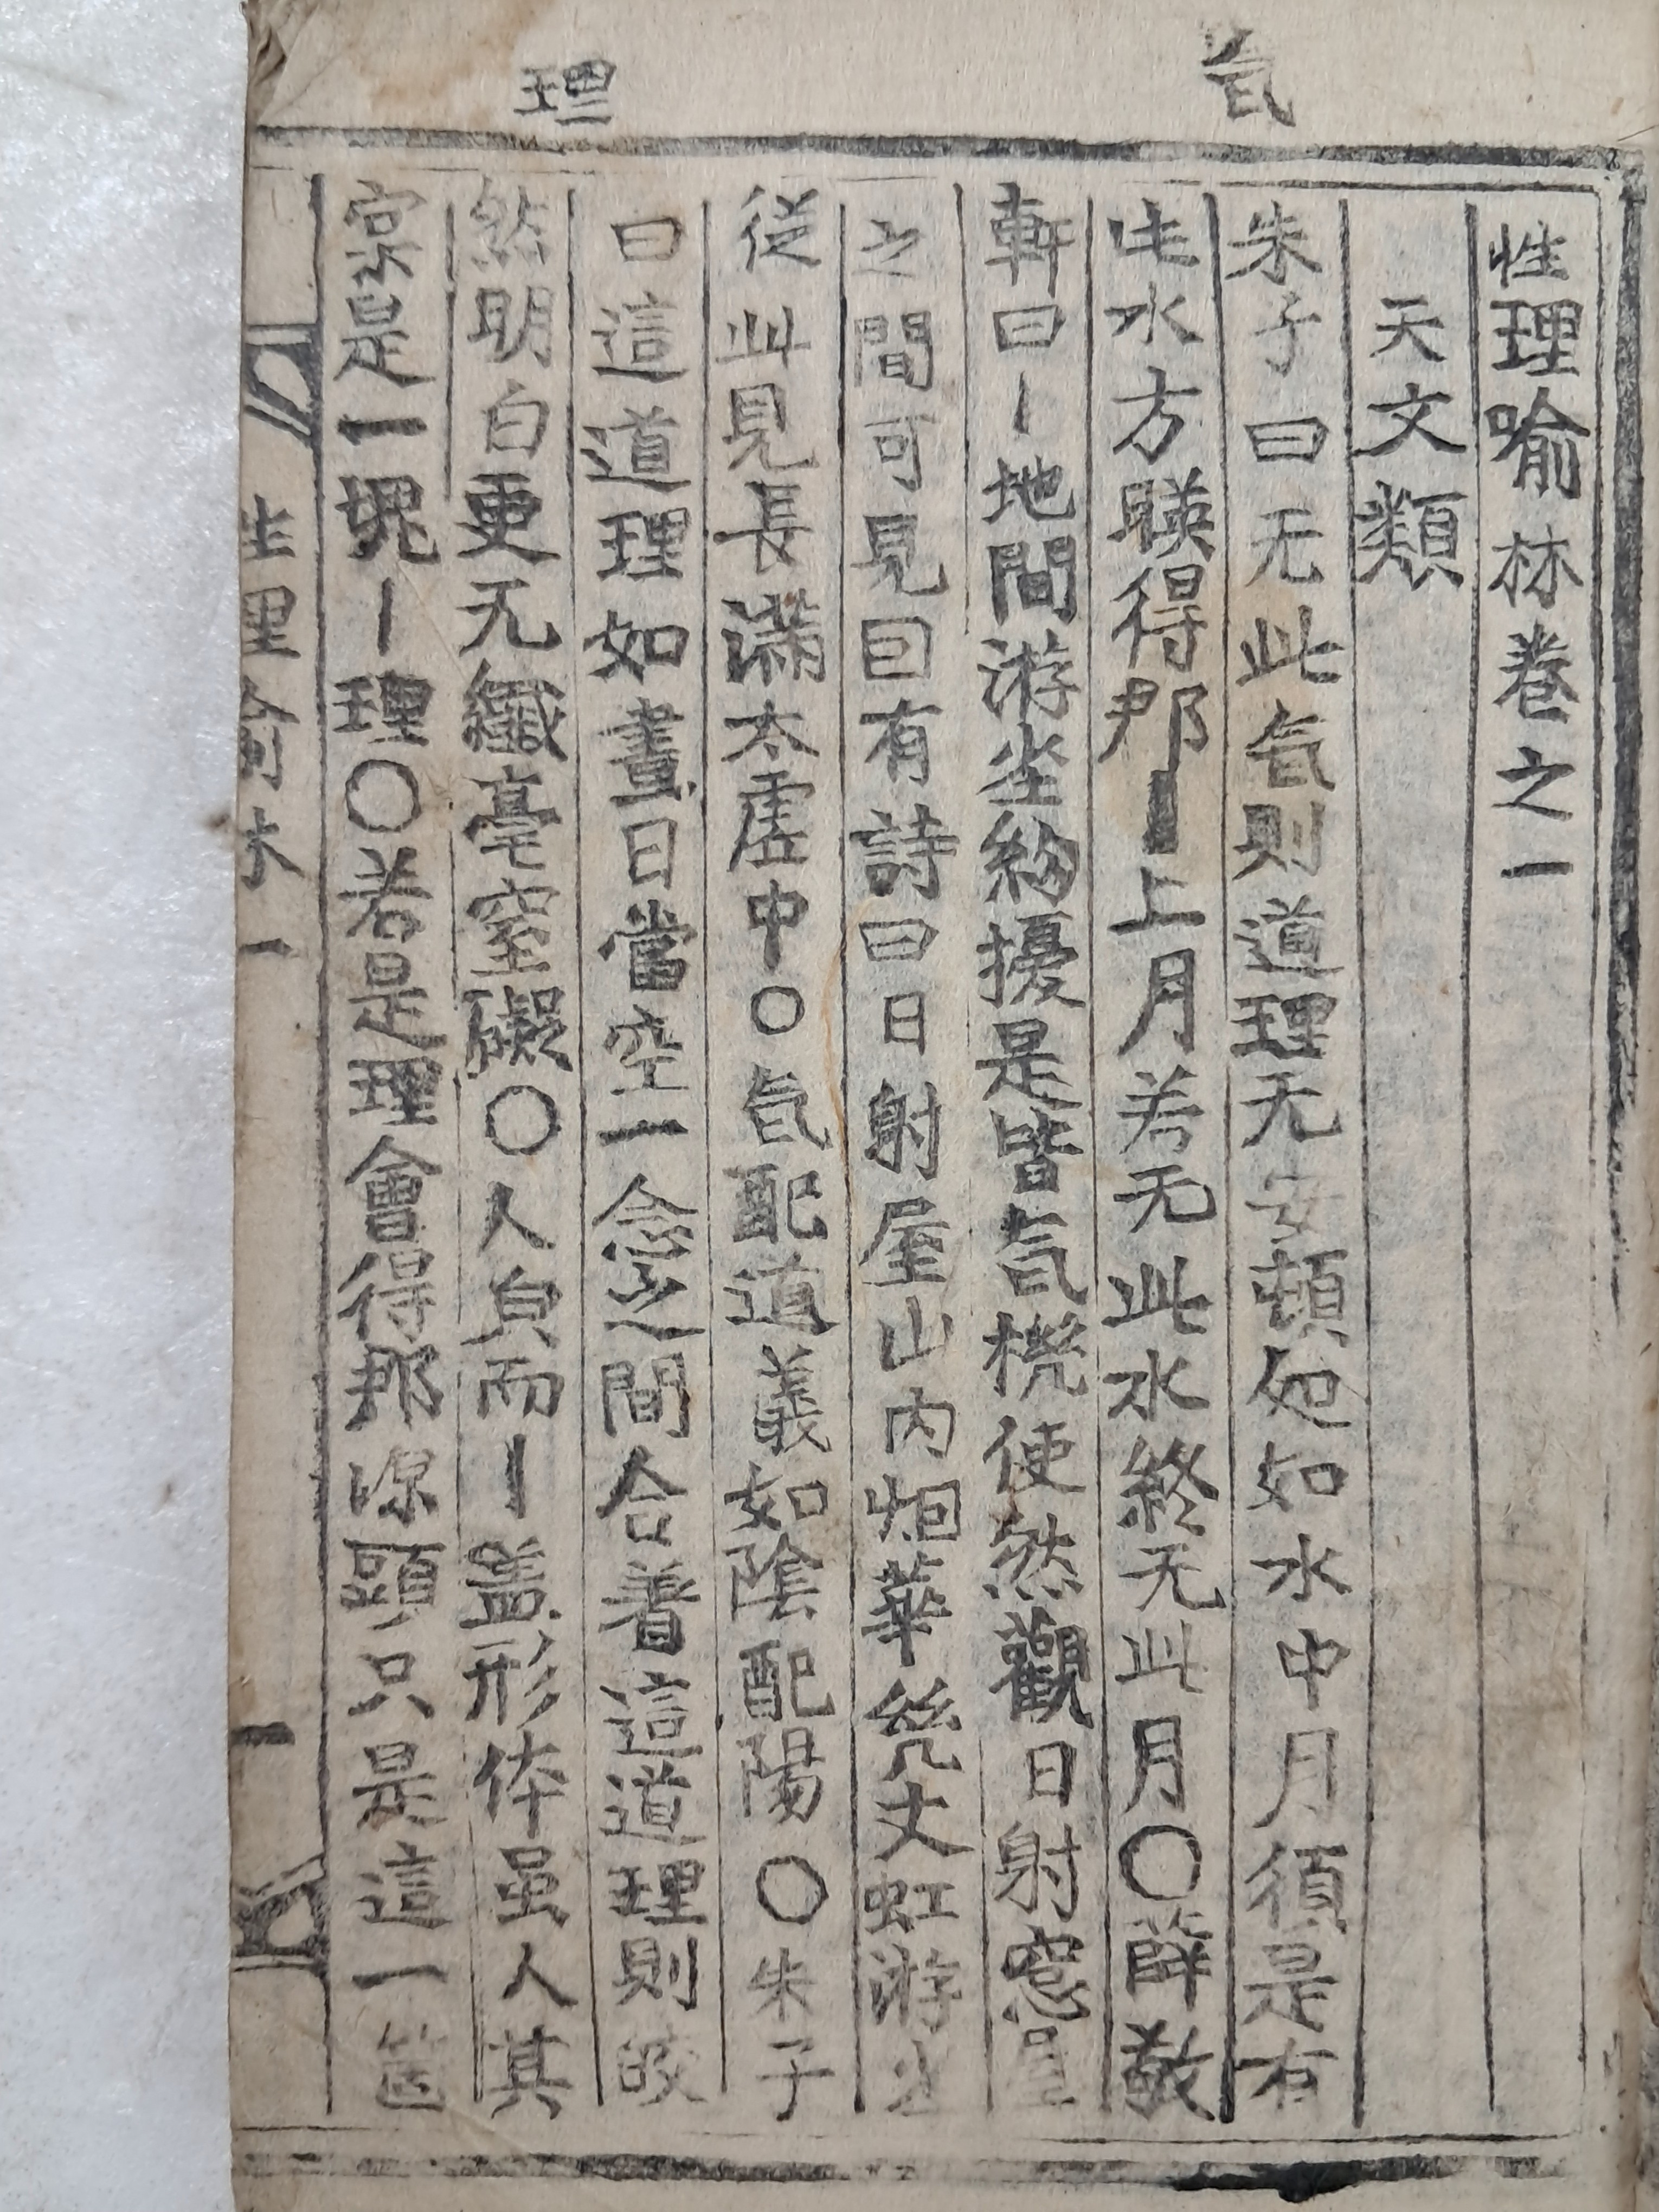 气
理
性理喻林卷之一
天文類
朱子曰无此气則道理无安頓処如水中月須是有
此水方暎得那丨上月若无此水終无此月〇薛敬
軒曰丨地間游尘紛擾是皆气機使然觀日射窓
之間可見囙有詩曰日射屋山内烟華幾丈虹游尘
從此見長滿太虛中〇气配道義如陰配陽〇朱子
曰這道理如晝日當空一念之間合着這道理則皎
然明白更无纖毫窒礙〇人自而丨盖形体虽人其
宲是一塊丨理〇若是理會得那源頭只是這一箇
性理喻林一
一